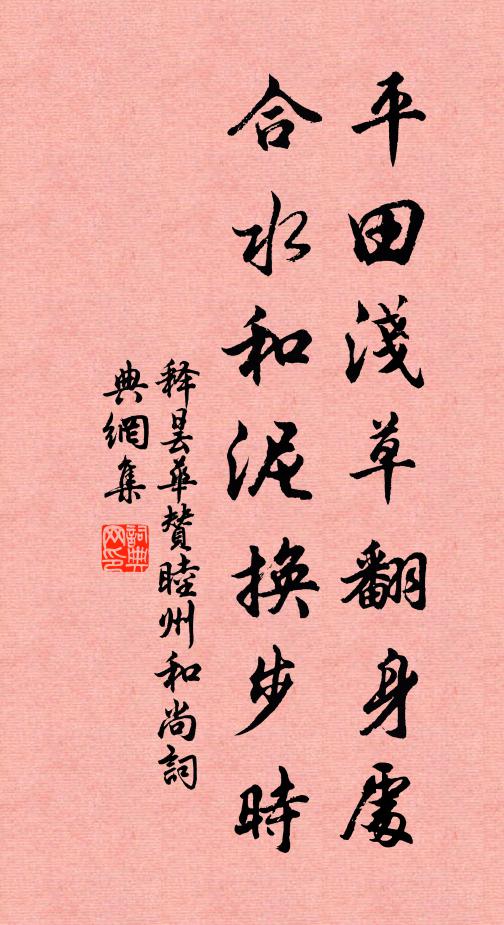 平田淺草翻身處
合水和泥換步時
释曇華贊睦州和尚詞
典網集
詞典
网印